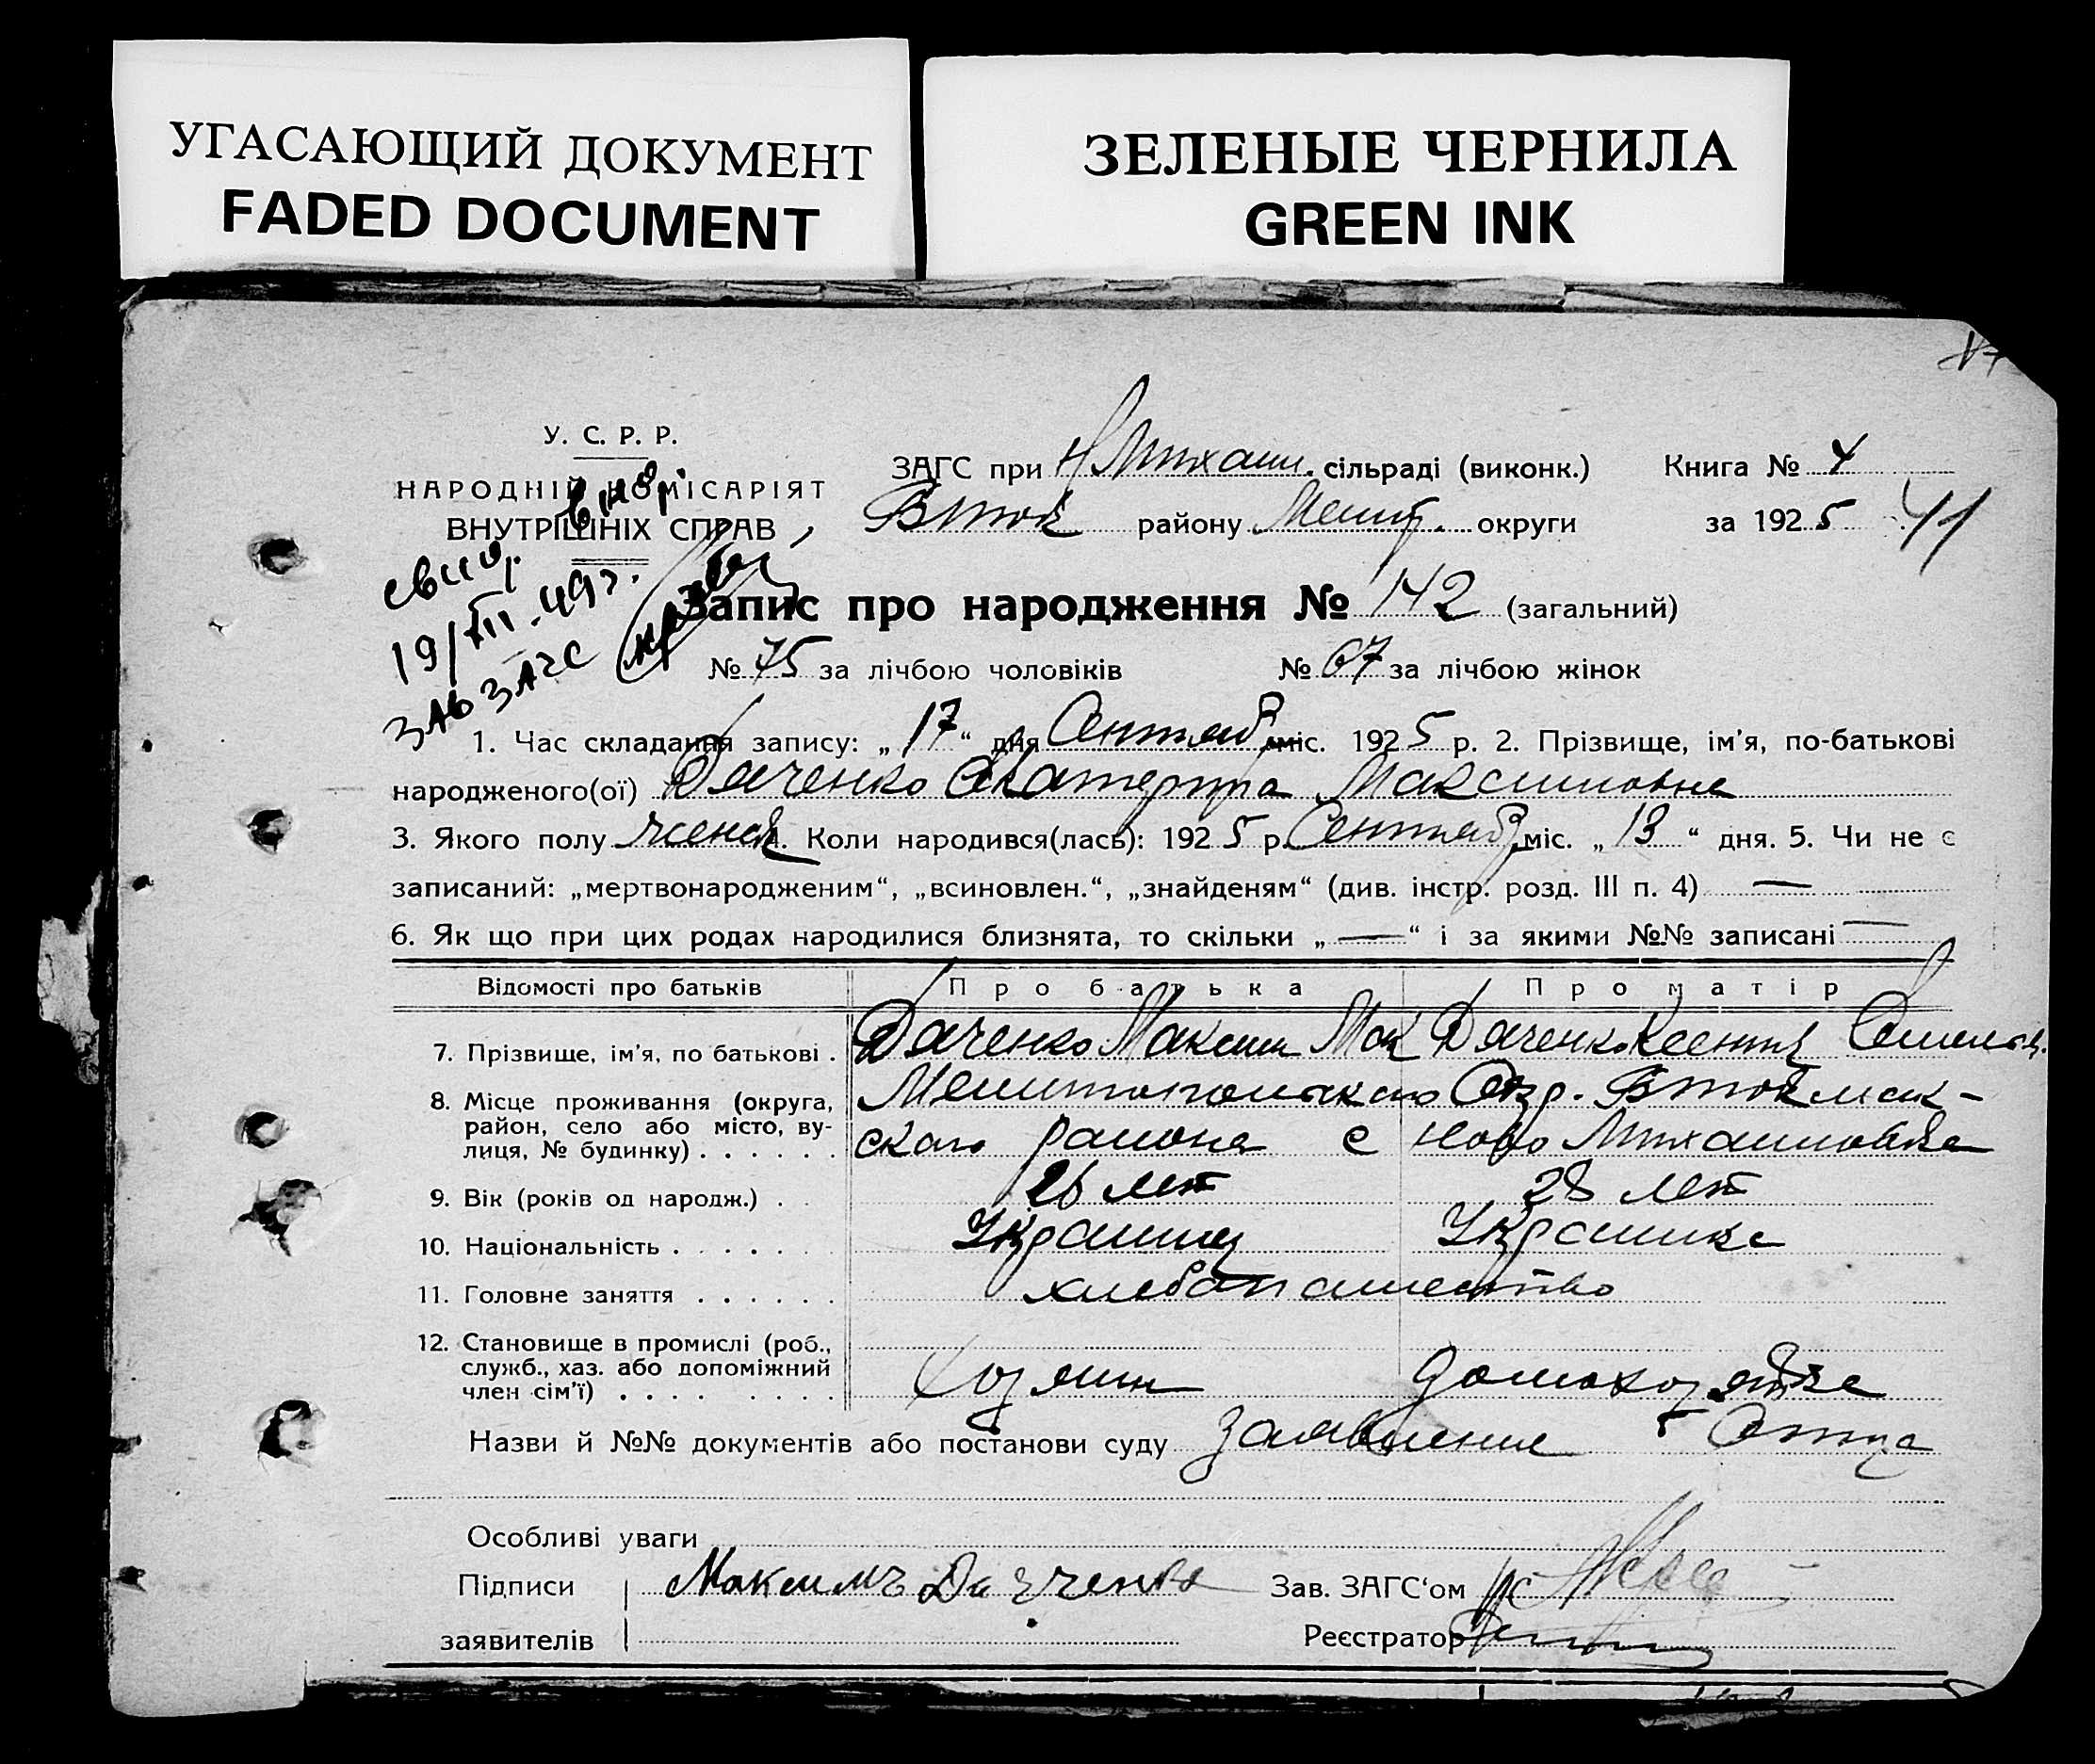 УГАСАЮЩИЙ ДОКУМЕНТ
FADED DOCUMENT
ЗЕЛЕНЫЕ ЧЕРНИЛА
GREEN INK
У. С. Р. Р.
НАРОДНІЙ КОМІСАРІЯТ
ВНУТРІШНІХ СПРАВ
19/VIII-49г.
Зав ЗАГС
ЗАГС при Н Михайл. сільраді (виконк.) Книга № 4
Вток району Мелит. округи за 1925 41
Запис про народження № 142 (загальний)
№ 75 за лічбою чоловіків № 67 за лічбою жінок
1. Час складання запису: „17“ дня Сентяб міс. 1925 р. 2. Прізвище, ім’я, по-батькові
народженого(ої) Дяченко Екатерина Максимовна
3. Якого полу женск. Коли народився(лась): 1925 р. Сентяб міс. „13“ дня. 5. Чи не є
записаний: „мертвонародженим“, „всиновлен.“, „знайденям“ (див. інстр. розд. III п. 4) —
6. Як що при цих родах народилися близнята, то скільки „—“ і за якими №№ записані —
Відомості про батьків Про батька Про матір
7. Прізвище, ім’я, по батькові . Дяченко Максим Мак Дяченко Ксения
8. Місце проживання (округа, Мелитопольского Окр. Втокмак-
район, село або місто, ву-
лиця, № будинку) . . . . . . ского района с Ново Михайловка
9. Вік (років од народж.) . . 26 лет 28 лет
10. Національність . . . . . . Украинец Украинка
11. Головне заняття . . . . . . хлебопашество
12. Становище в промислі (роб.,
служб., хаз. або допоміжний
член сім’ї) . . . . . . . . Хозяин домохозяйка
Назви й №№ документів або постанови суду заявление Отца
Особливі уваги
Підписи Максимъ Дяченко Зав. ЗАГС‘ом
заявителів Реєстратор